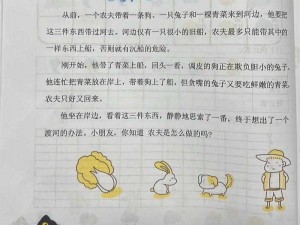 从前，一个农夫带着一条狗、一只兔子和一棵青菜来到河边，他要把
这三件东西带过去。河边仅有一只很小的旧船，农夫最多只能带其中的
一样东西上船，否则就有沉船的危险。
刚开始，他带了青菜上船，回头一看，调皮的狗正在欺负胆小的兔子。
他连忙把青菜放在岸上，带着狗上了船，但贪嘴的兔子又要吃鲜嫩的青菜，
农夫只好又回来。
他坐在岸边，看着这三件东西，静静地思索了一番，终于想出了一个
渡河的办法。小朋友，你知道 农夫是怎么做的吗？